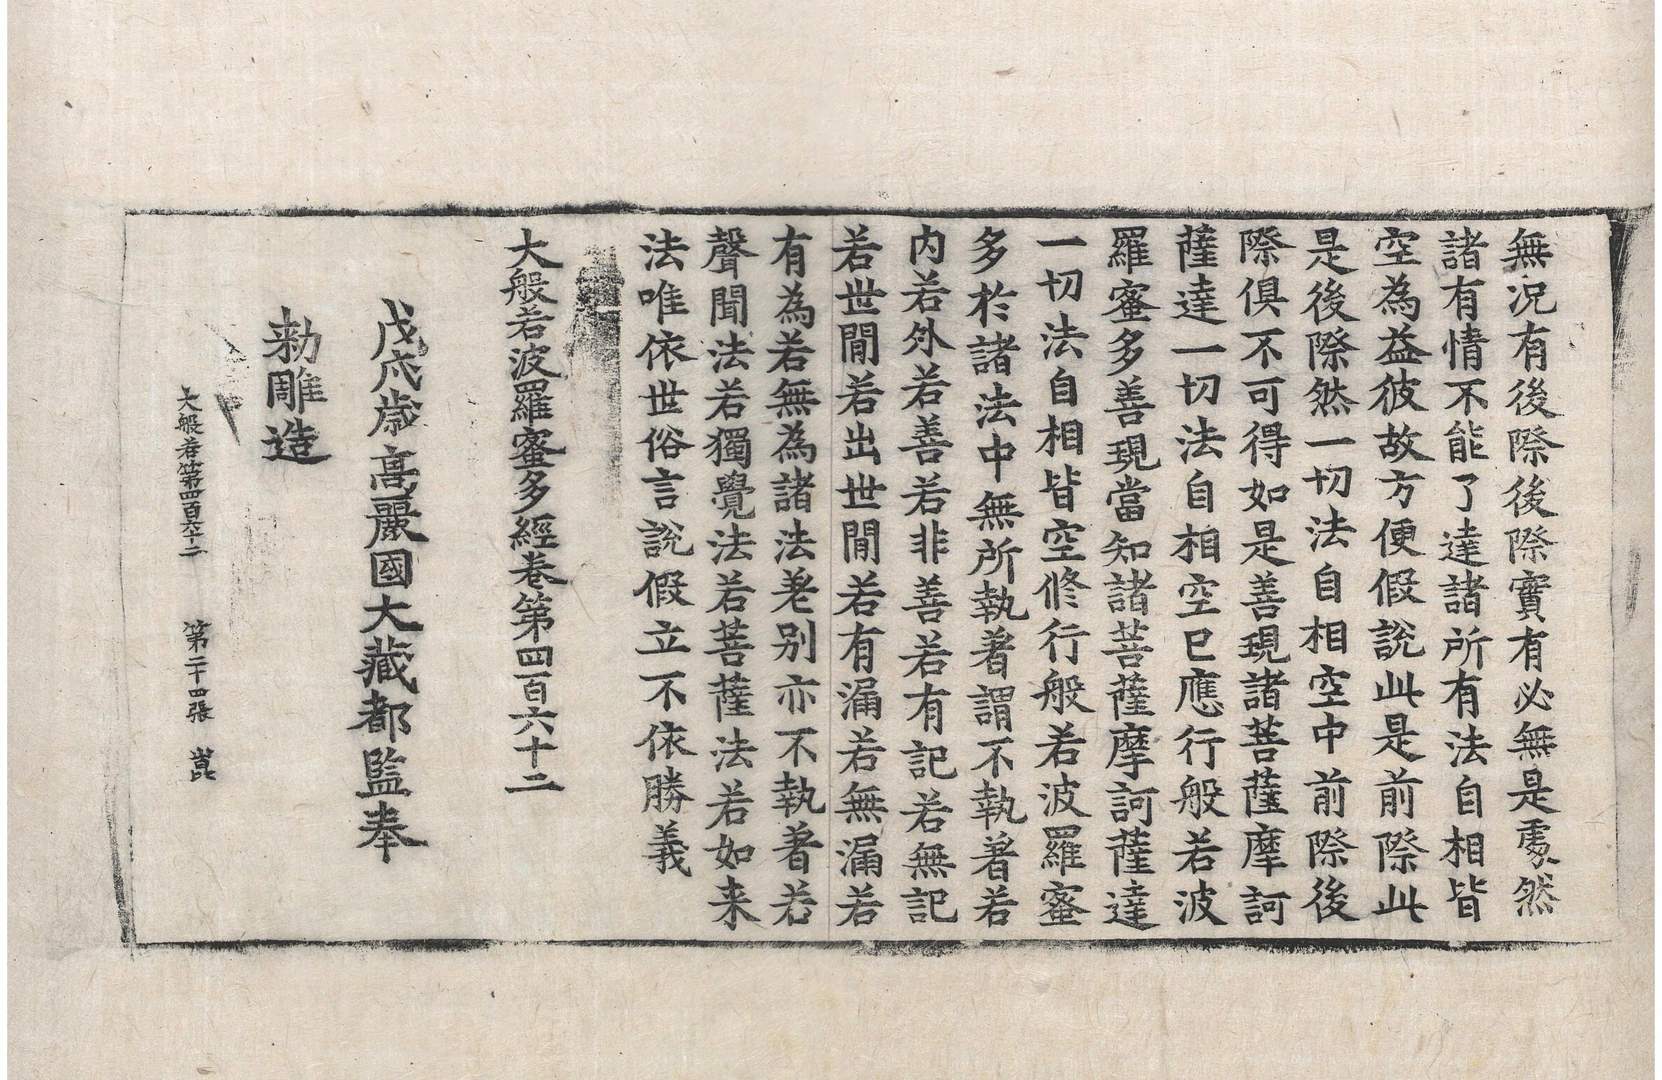 無況有後際後際實有必無是處然
諸有情不能了達諸所有法自相皆
空為益彼故方便假說此是前際此
是後際然一切法自相空中前際後
際俱不可得如是善現諸菩薩摩訶
薩達一切法自相空已應行般若波
羅蜜多善現當知諸菩薩摩訶薩達
一切法自相皆空修行般若波羅蜜
多於諸法中無所執著謂不執著若
內若外若善若非善若有記若無記
若世間若出世間若有漏若無漏若
有為若無為諸法差別亦不執著若
聲聞法若獨覺法若菩薩法若如来
法唯依世俗言說假立不依勝義
大般若波羅蜜多經卷第四百六十二
戊戌歲高麗國大藏都監奉
勑雕造
大般若第四百六十二 第二十四張 崑